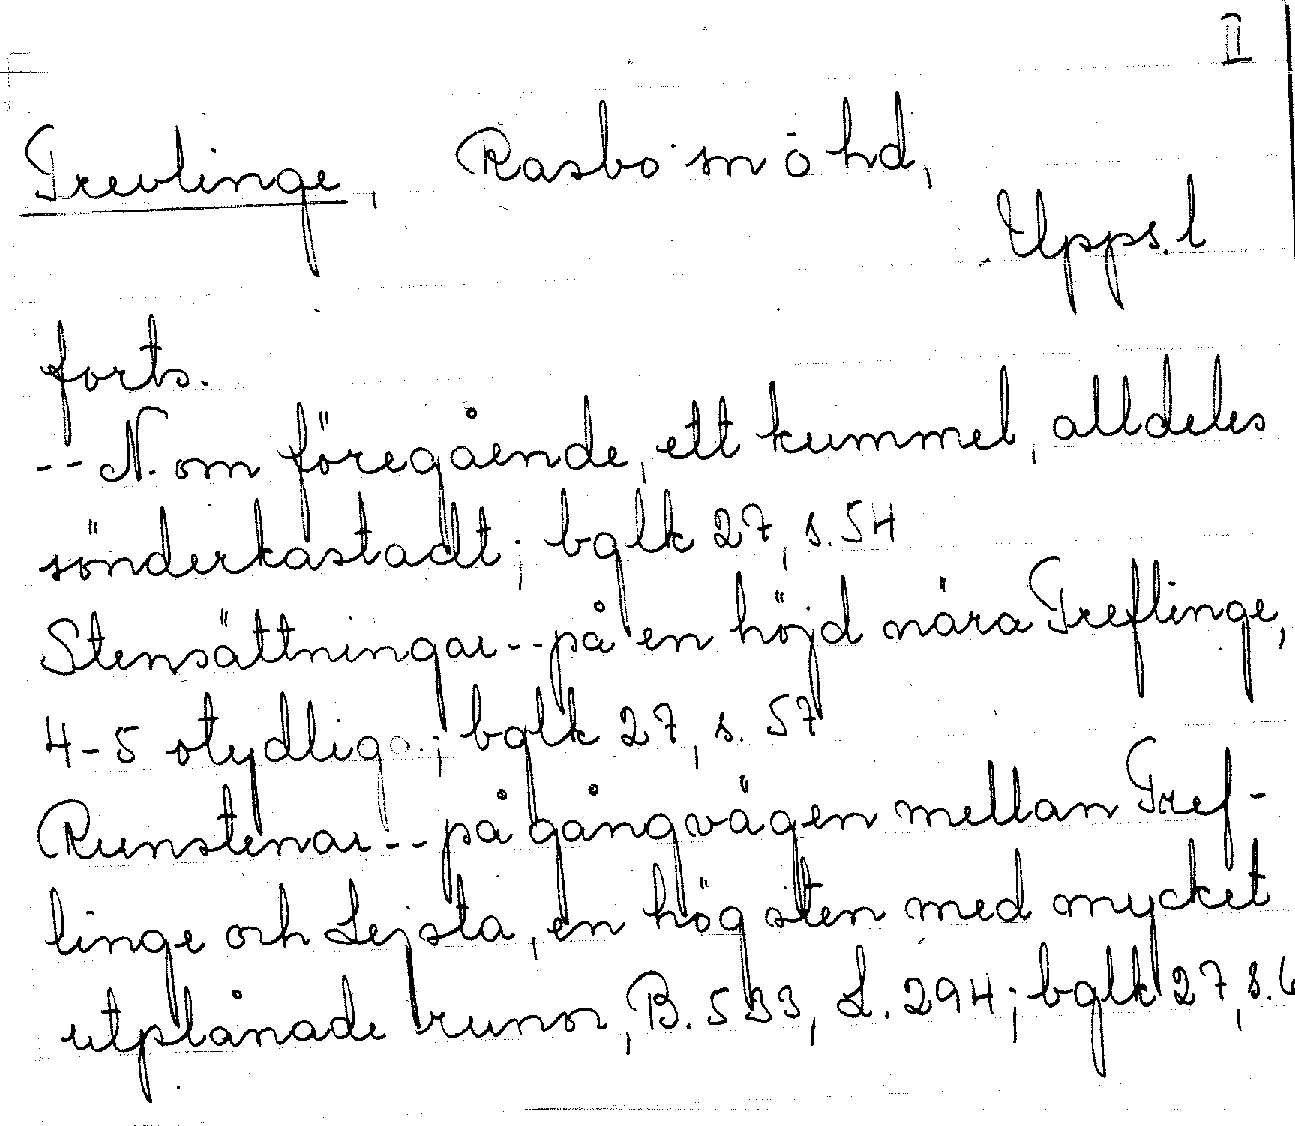 II
Trevlinge, Rasbo sn o hd,
Upps. l
forts.
-- N. om föregående, ett kummel, alldeles
sönderkastadt; bglk 27, s. 54
Stensättningar -- på en höjd nära Treflinge,
4-5 otydliga; bglk 27, s. 57
Runstenar -- på gångvägen mellan Tref-
linge och Lejsta, en hög sten med mycket
utplånade runor, B. 533, L. 294; bglk 27, s. 6